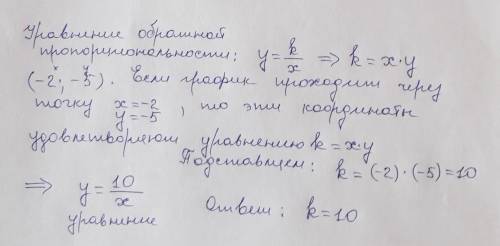 Уравнение обратной
пропорциональности: y = k/x ⇒ k = x·y
(-2; -5). Если график проходит через
x y
точку x = -2
y = -5, то эти координаты
удовлетворяют уравнению k = x·y
Подставляем: k = (-2)·(-5) = 10
⇒ y = 10/x
уравнение Ответ: k = 10